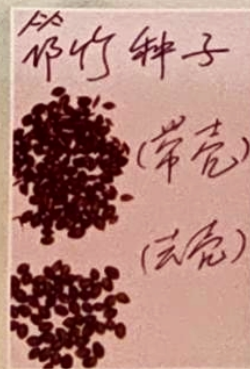 筇竹种子
(带壳)
(去壳)